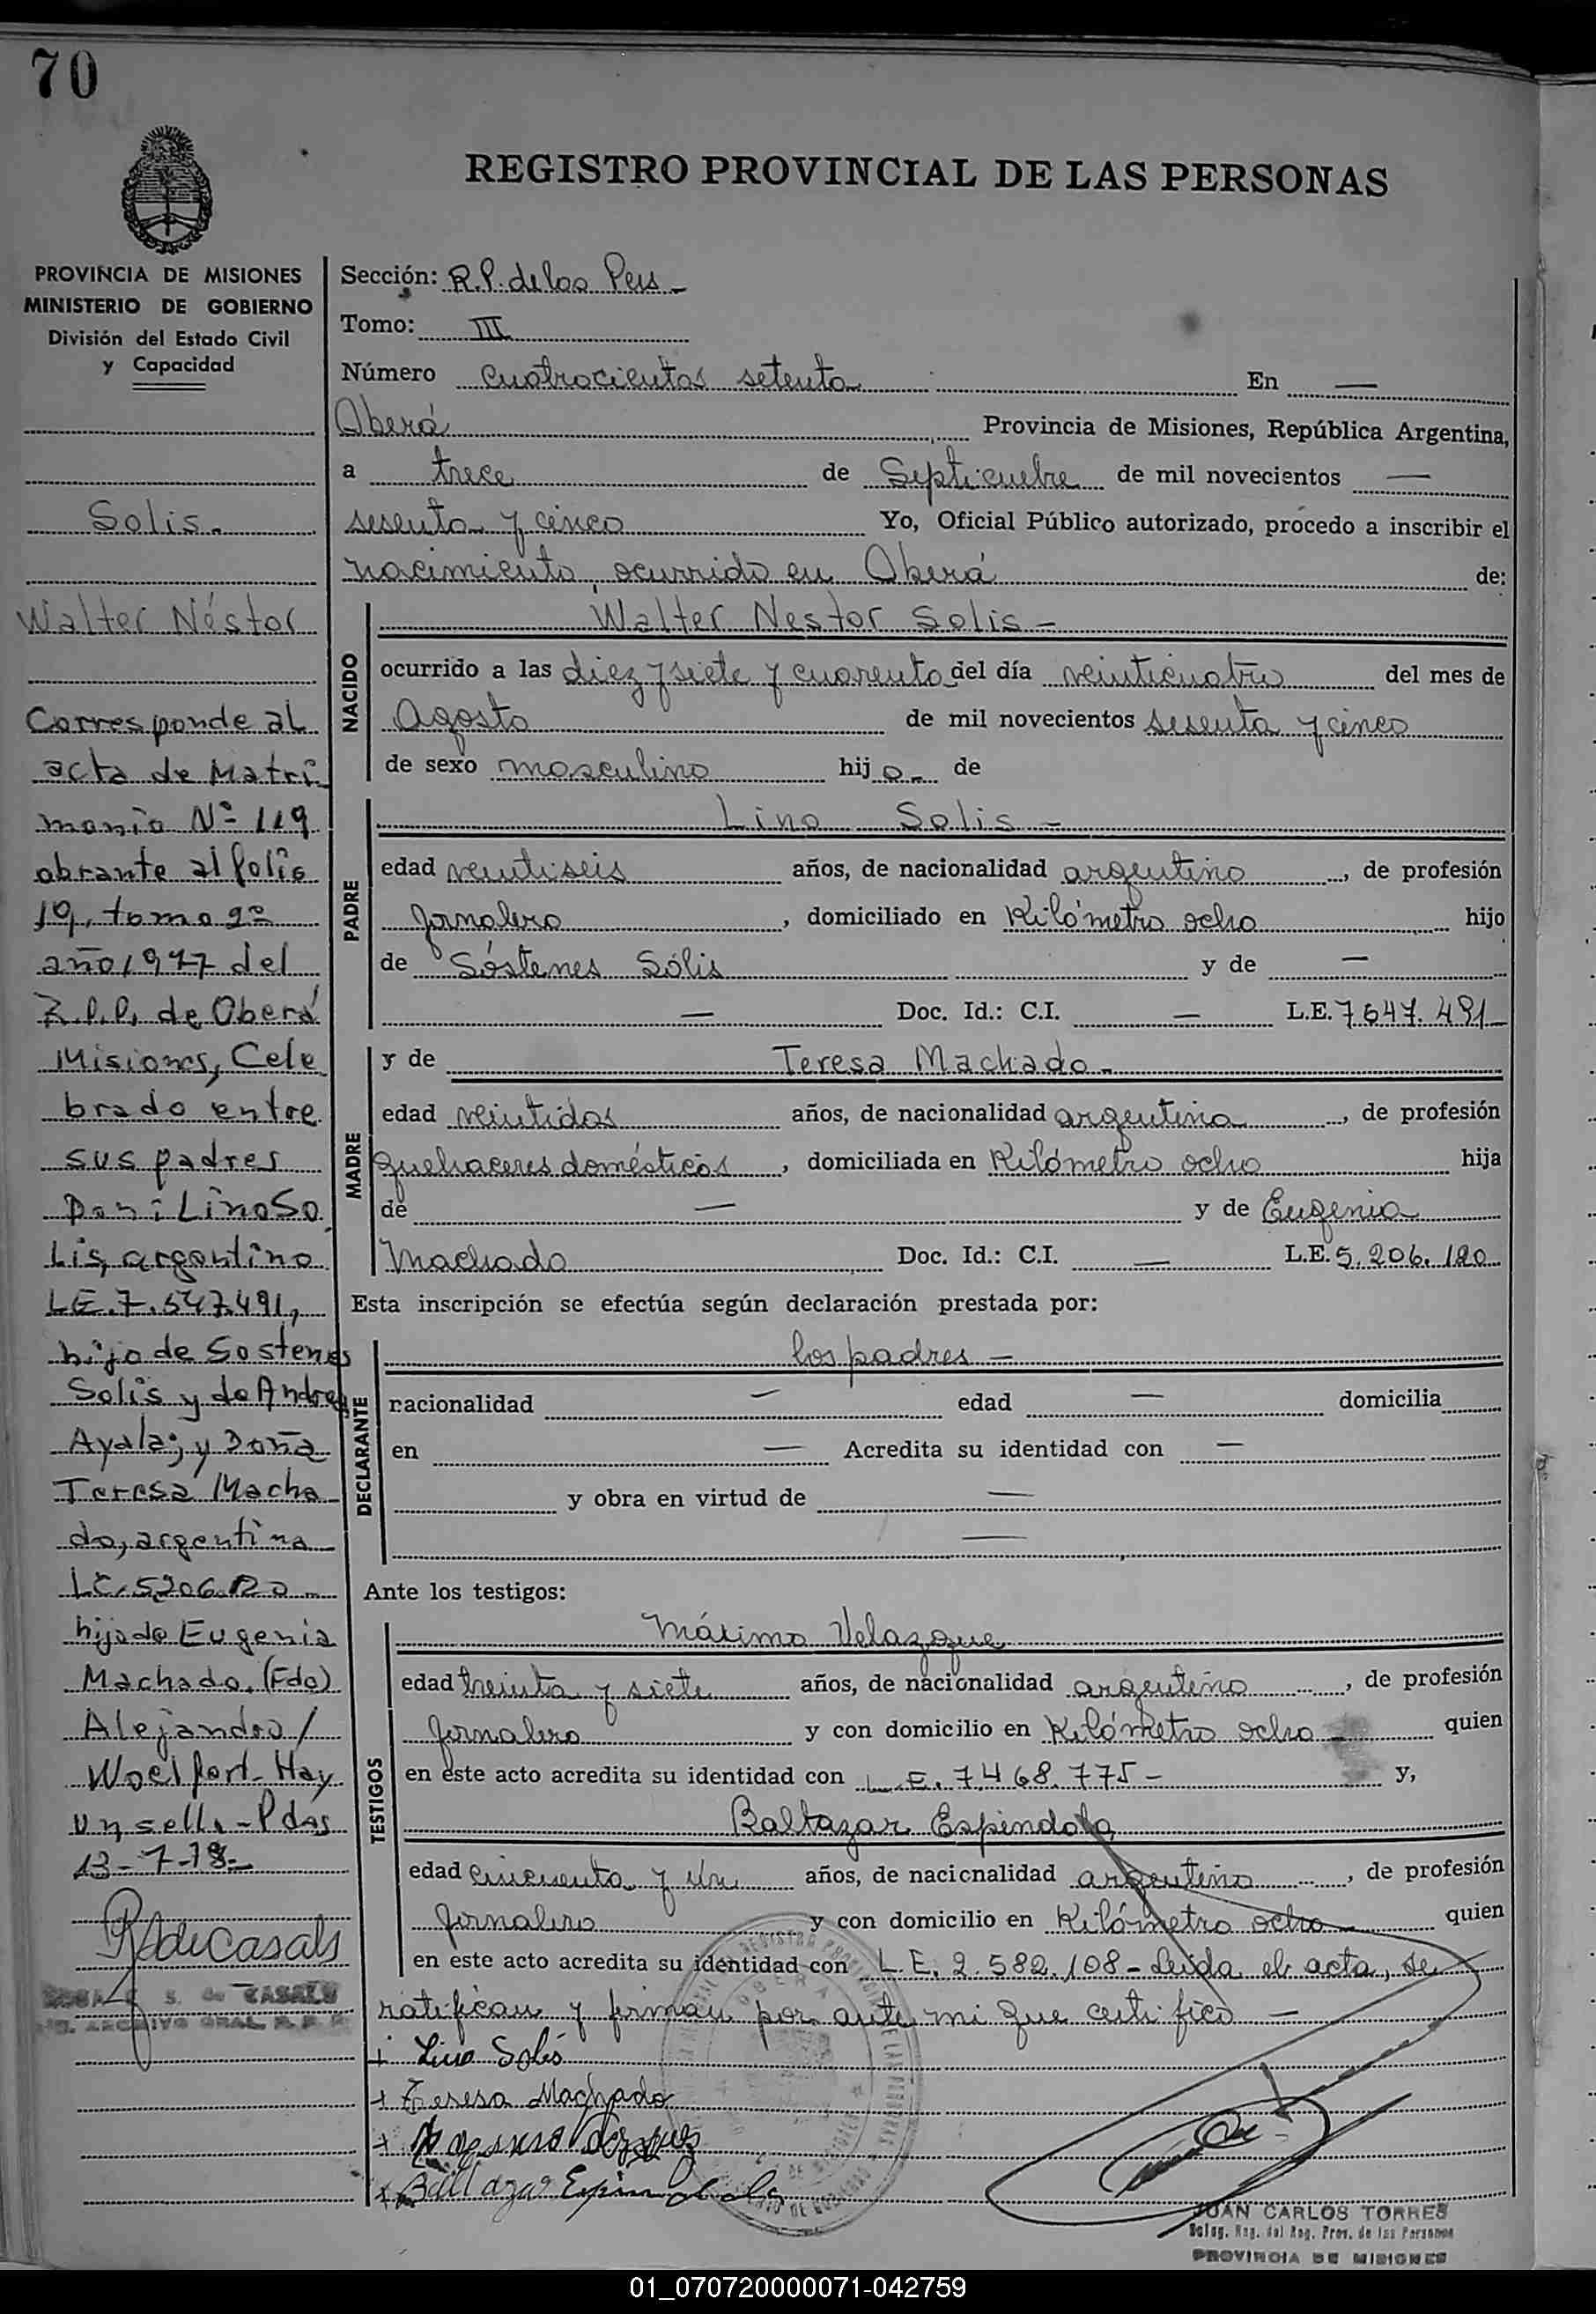 70
REGISTRO PROVINCIAL DE LAS PERSONAS
PROVINCIA DE MISIONES
MINISTERIO DE GOBIERNO
División del Estado Civil
y Capacidad
Solis.
Walter Néstor
Corresponde al
acta de Matri
monio Nº 119
obrante al folio
19, tomo 2º
año 1977 del
R.P.P. de Oberá
Misiones, Cele
brado entre
sus padres
Don: Lino So
lis, argentino
LE.7.547.491,
hijo de Sostenes
Solis y de Andrea
Ayala; y Doña
Teresa Macha
do, argentina
LC.5206.120
hija de Eugenia
Machado. (Fdo)
Alejandro /
Woelfert- Hay
un sello - Pdas
13-7-78-
R de Casals
S. de CASALS
ARCHIVO GRAL. R. P. P.
Sección: R.P. de las Pers -
Tomo: III
Número cuatrocientos setenta En —
Oberá Provincia de Misiones, República Argentina,
a trece de Septiembre de mil novecientos —
sesenta y cinco Yo, Oficial Público autorizado, procedo a inscribir el
nacimiento, ocurrido en Oberá de:
NACIDO
Walter Nestor Solis -
ocurrido a las diez y siete y cuarenta del día veinticuatro del mes de
Agosto de mil novecientos sesenta y cinco
de sexo masculino hijo - de
PADRE
Lino Solis -
edad veintiseis años, de nacionalidad argentino, de profesión
Jornalero, domiciliado en Kilómetro ocho hijo
de Sóstenes Sólis y de —
— Doc. Id.: C.I. — L.E. 7.647.491
MADRE
y de Teresa Machado -
edad veintidos años, de nacionalidad argentina, de profesión
quehaceres domésticos, domiciliada en Kilómetro ocho hija
de — y de Eugenia
Machado Doc. Id.: C.I. — L.E. 5.206.120
Esta inscripción se efectúa según declaración prestada por:
DECLARANTE
los padres -
nacionalidad — edad — domicilia
en — Acredita su identidad con —
y obra en virtud de —
—
Ante los testigos:
TESTIGOS
Máximo Velazque
edad treinta y siete años, de nacionalidad argentino, de profesión
Jornalero y con domicilio en Kilómetro ocho - quien
en este acto acredita su identidad con L.E. 7468.775 - y,
Baltazar Espindola
edad cincuenta y un años, de nacionalidad argentino, de profesión
Jornalero y con domicilio en Kilómetro ocho quien
en este acto acredita su identidad con L.E. 2.582.108 - Leída el acta, se
ratifican y firman por ante mi que certifico —
+ Lino Solis
+ Teresa Machado
+ Baltazar Espindola
JUAN CARLOS TORRES
Deleg. Reg. del Reg. Prov. de las Personas
PROVINCIA DE MISIONES
01_070720000071-042759